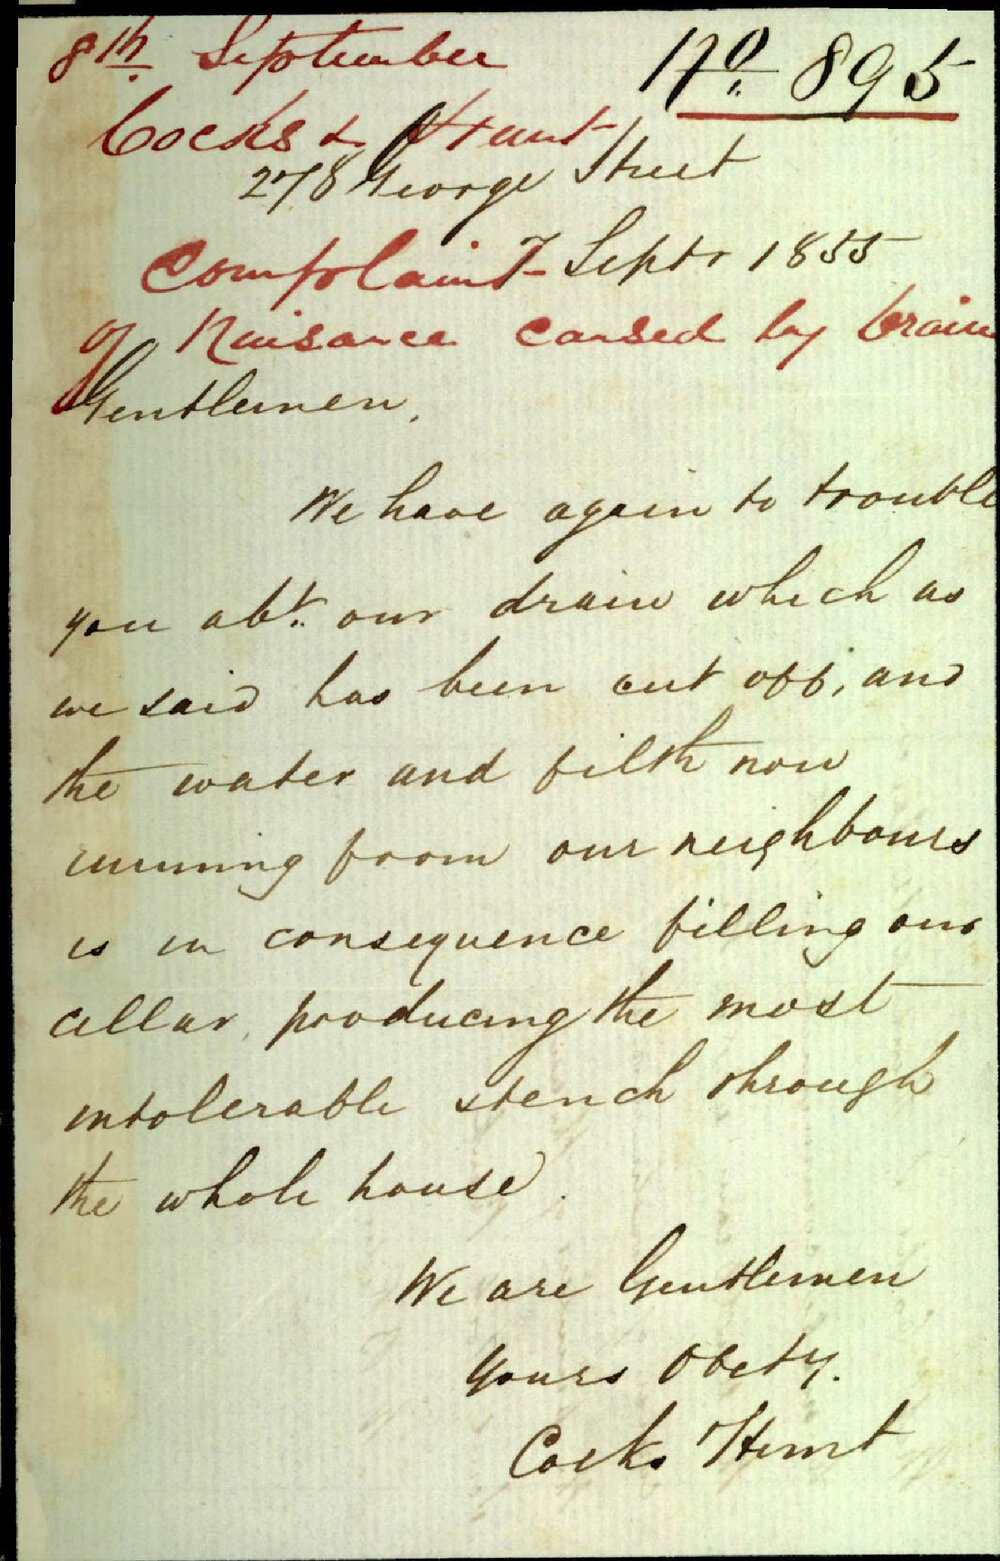 8th. September
No. 895
Cocks & Hunt
278 George Street
Complaint 7 Septr 1855
of Nuisance caused by Drain
Gentlemen,
We have again to trouble
you abt. our drain which as
we said has been cut off, and
the water and filth now
running from our neighbours
is in consequence filling our
cellar, producing the most
intolerable stench through
the whole house.
We are Gentlemen
Yours Obety.
Cocks & Hunt